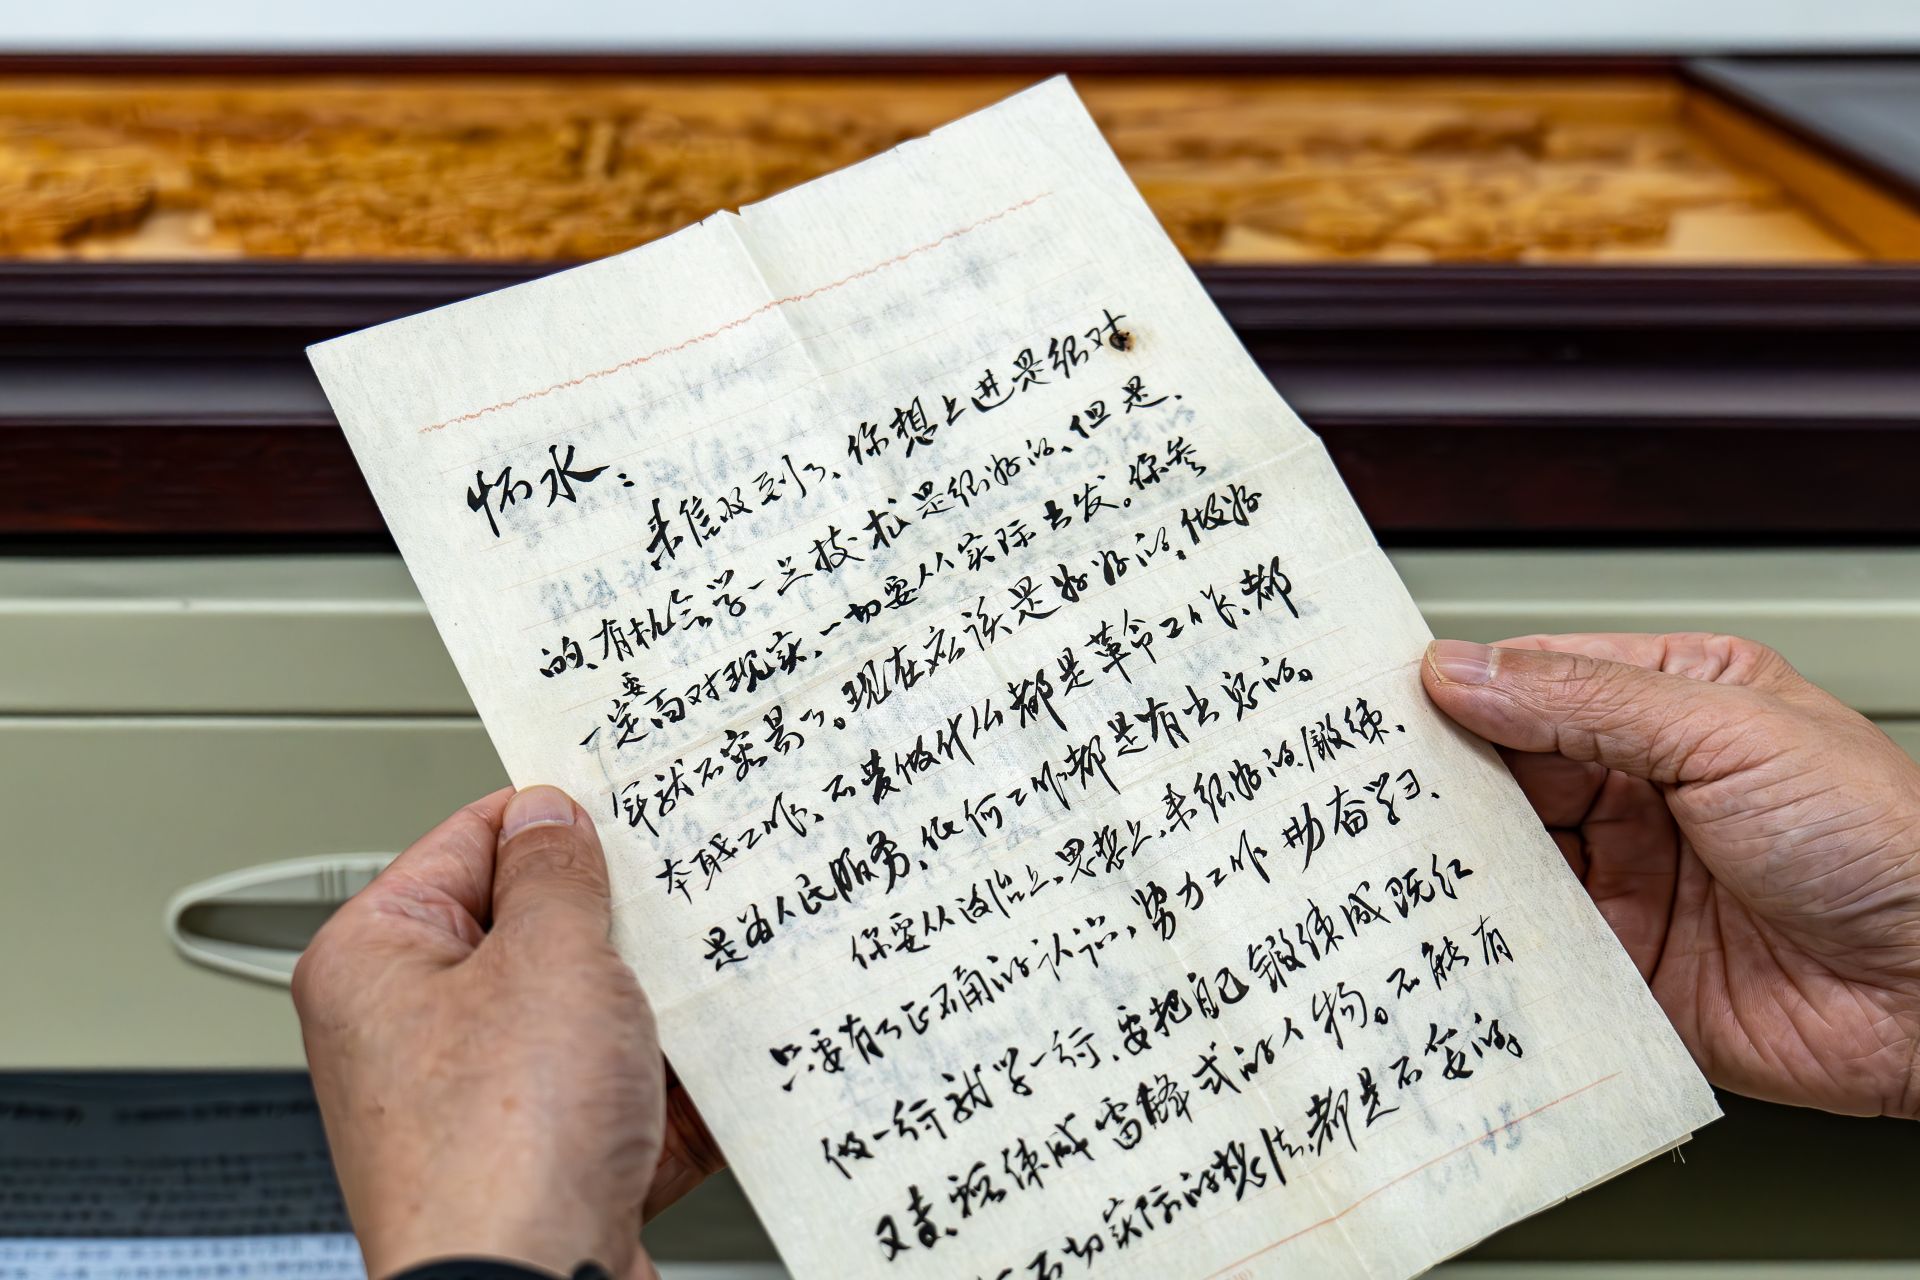 怀水：
来信收到了、你想上进是很对
的、有机会学一兰技术是很好的、但是、
一定要面对现实、一切要从实际出发。你参
军就不容易了。现在应该是好好的、做好
本职工作、不要做什么都是革命工作、都
是为人民服务、任何工作都是有出息的。
你要从政治上、思想上、来很好的锻练、
只要有了正确的认识，努力工作 勤奋学习、
做一行就学一行、要把自己锻练成既红
又专、锻练成雷锋式的人物。不能有
不切实际的想法、都是不妥的